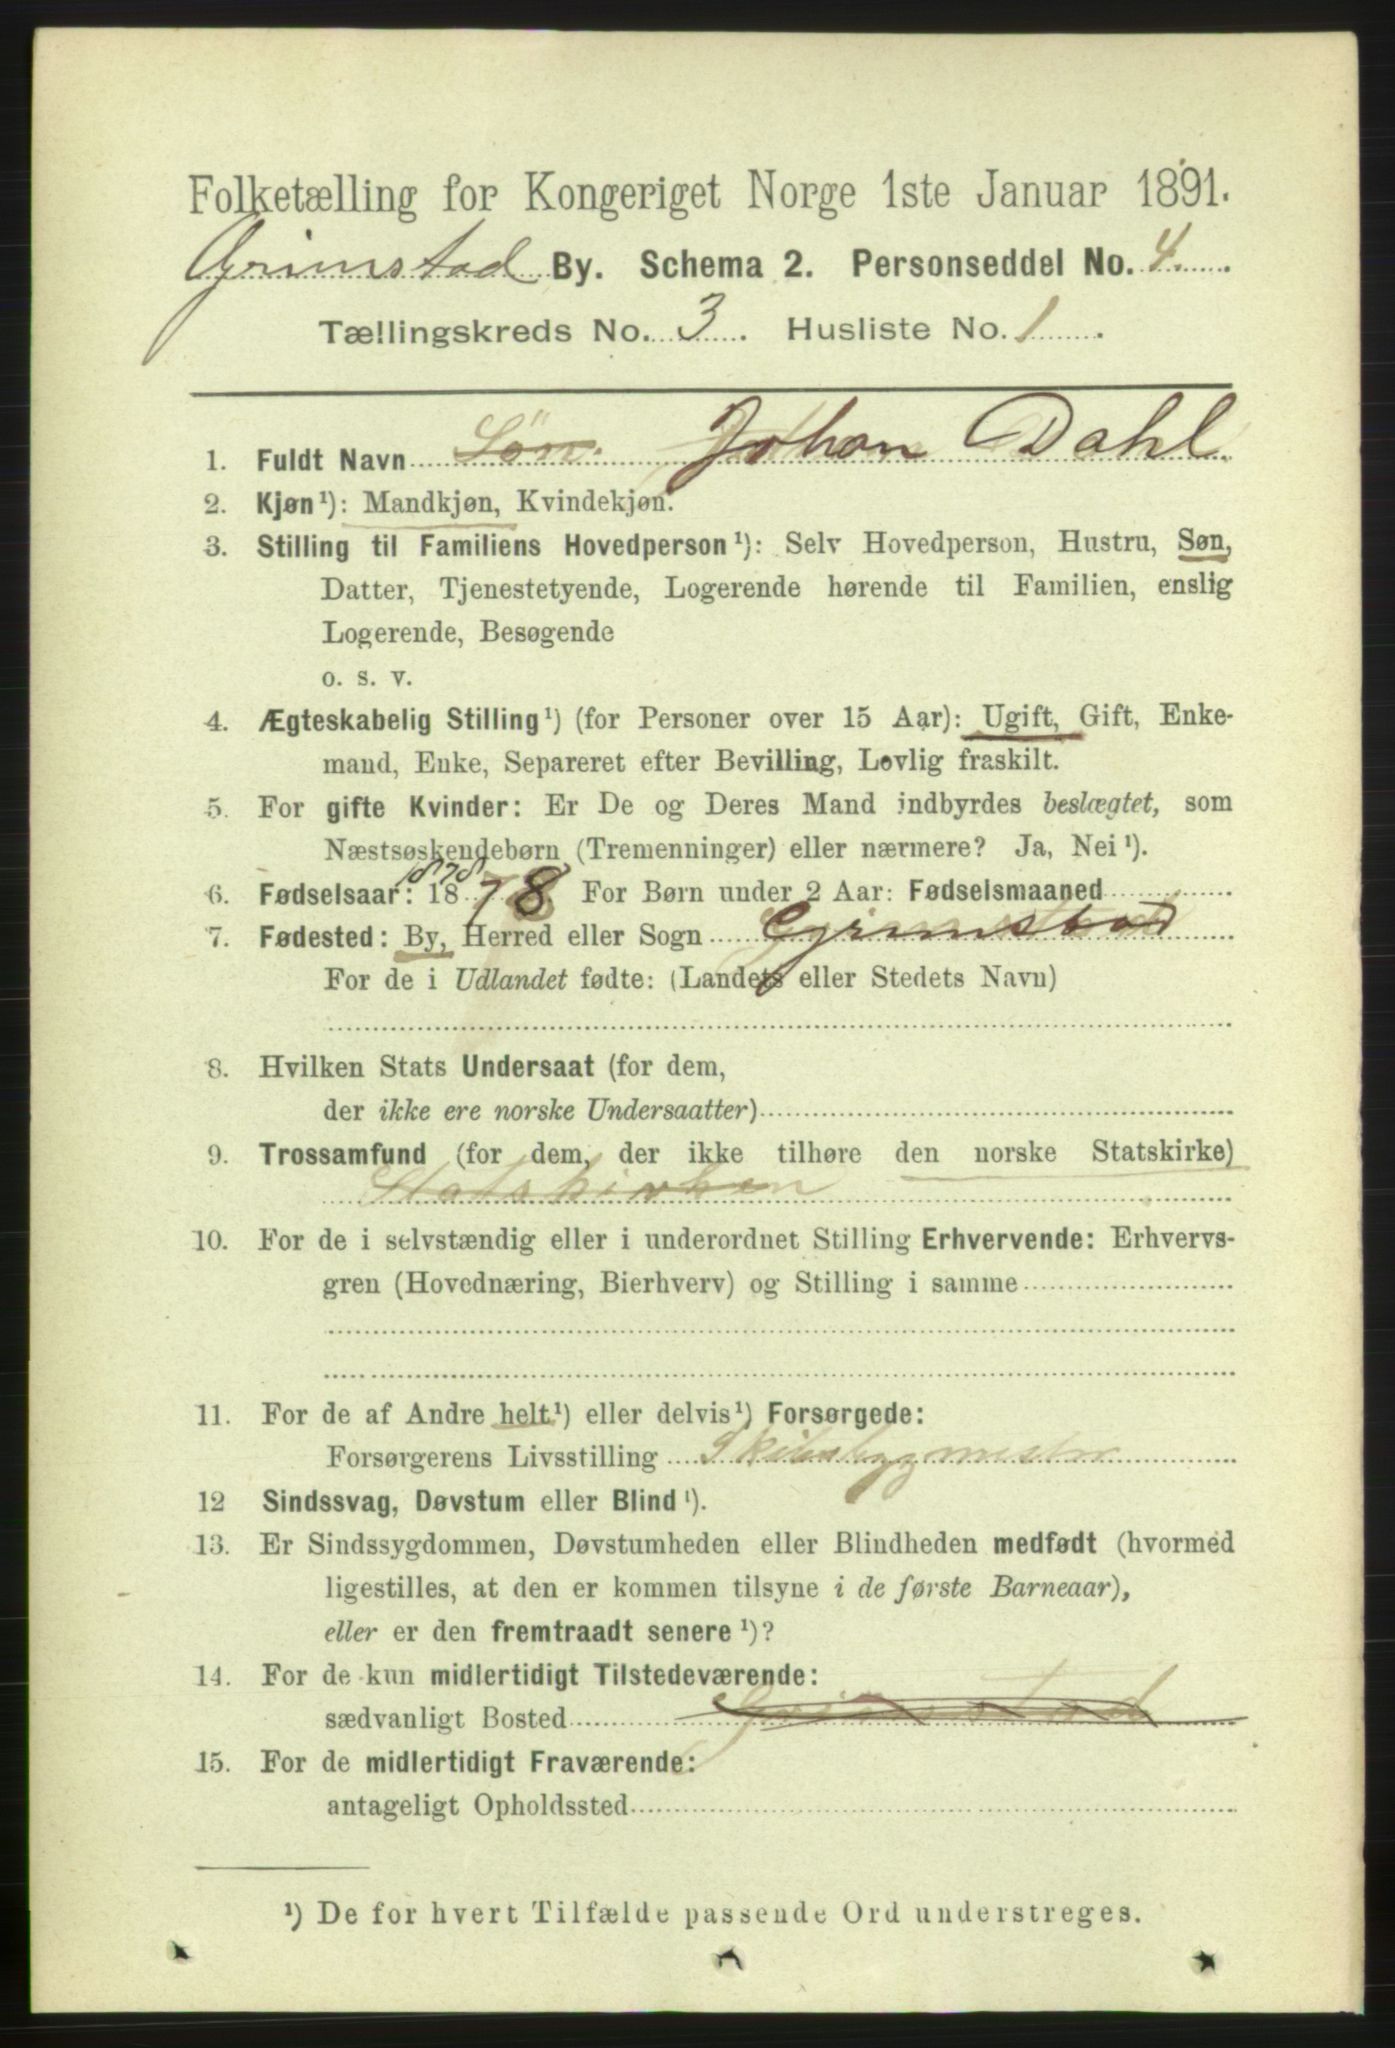 Folketælling for Kongeriget Norge 1ste Januar 1891.
Grimstad By. Schema 2. Personseddel No. 4.
Tællingskreds No. 3. Husliste No. 1.
1. Fuldt Navn Søn. Johan Dahl
2. Kjøn¹): Mandkjøn, Kvindekjøn.
3. Stilling til Familiens Hovedperson¹): Selv Hovedperson, Hustru, Søn,
Datter, Tjenestetyende, Logerende hørende til Familien, enslig
Logerende, Besøgende
o. s. v.
4. Ægteskabelig Stilling¹) (for Personer over 15 Aar): Ugift, Gift, Enke-
mand, Enke, Separeret efter Bevilling, Lovlig fraskilt.
5. For gifte Kvinder: Er De og Deres Mand indbyrdes beslægtet, som
Næstsøskendebørn (Tremenninger) eller nærmere? Ja, Nei¹).
1878
6. Fødselsaar: 1878 For Børn under 2 Aar: Fødselsmaaned
7. Fødested: By, Herred eller Sogn Grimstad
For de i Udlandet fødte: (Landets eller Stedets Navn)
8. Hvilken Stats Undersaat (for dem,
der ikke ere norske Undersaatter)
9. Trossamfund (for dem, der ikke tilhøre den norske Statskirke)
Statskirken
10. For de i selvstændig eller i underordnet Stilling Erhvervende: Erhvervs-
gren (Hovednæring, Bierhverv) og Stilling i samme
11. For de af Andre helt¹) eller delvis¹) Forsørgede:
Forsørgerens Livsstilling Skibsbygmester
12 Sindssvag, Døvstum eller Blind¹).
13. Er Sindssygdommen, Døvstumheden eller Blindheden medfødt (hvormed
ligestilles, at den er kommen tilsyne i de første Barneaar),
eller er den fremtraadt senere¹)?
14. For de kun midlertidigt Tilstedeværende:
sædvanligt Bosted Grimstad
15. For de midlertidigt Fraværende:
antageligt Opholdssted
¹) De for hvert Tilfælde passende Ord understreges.